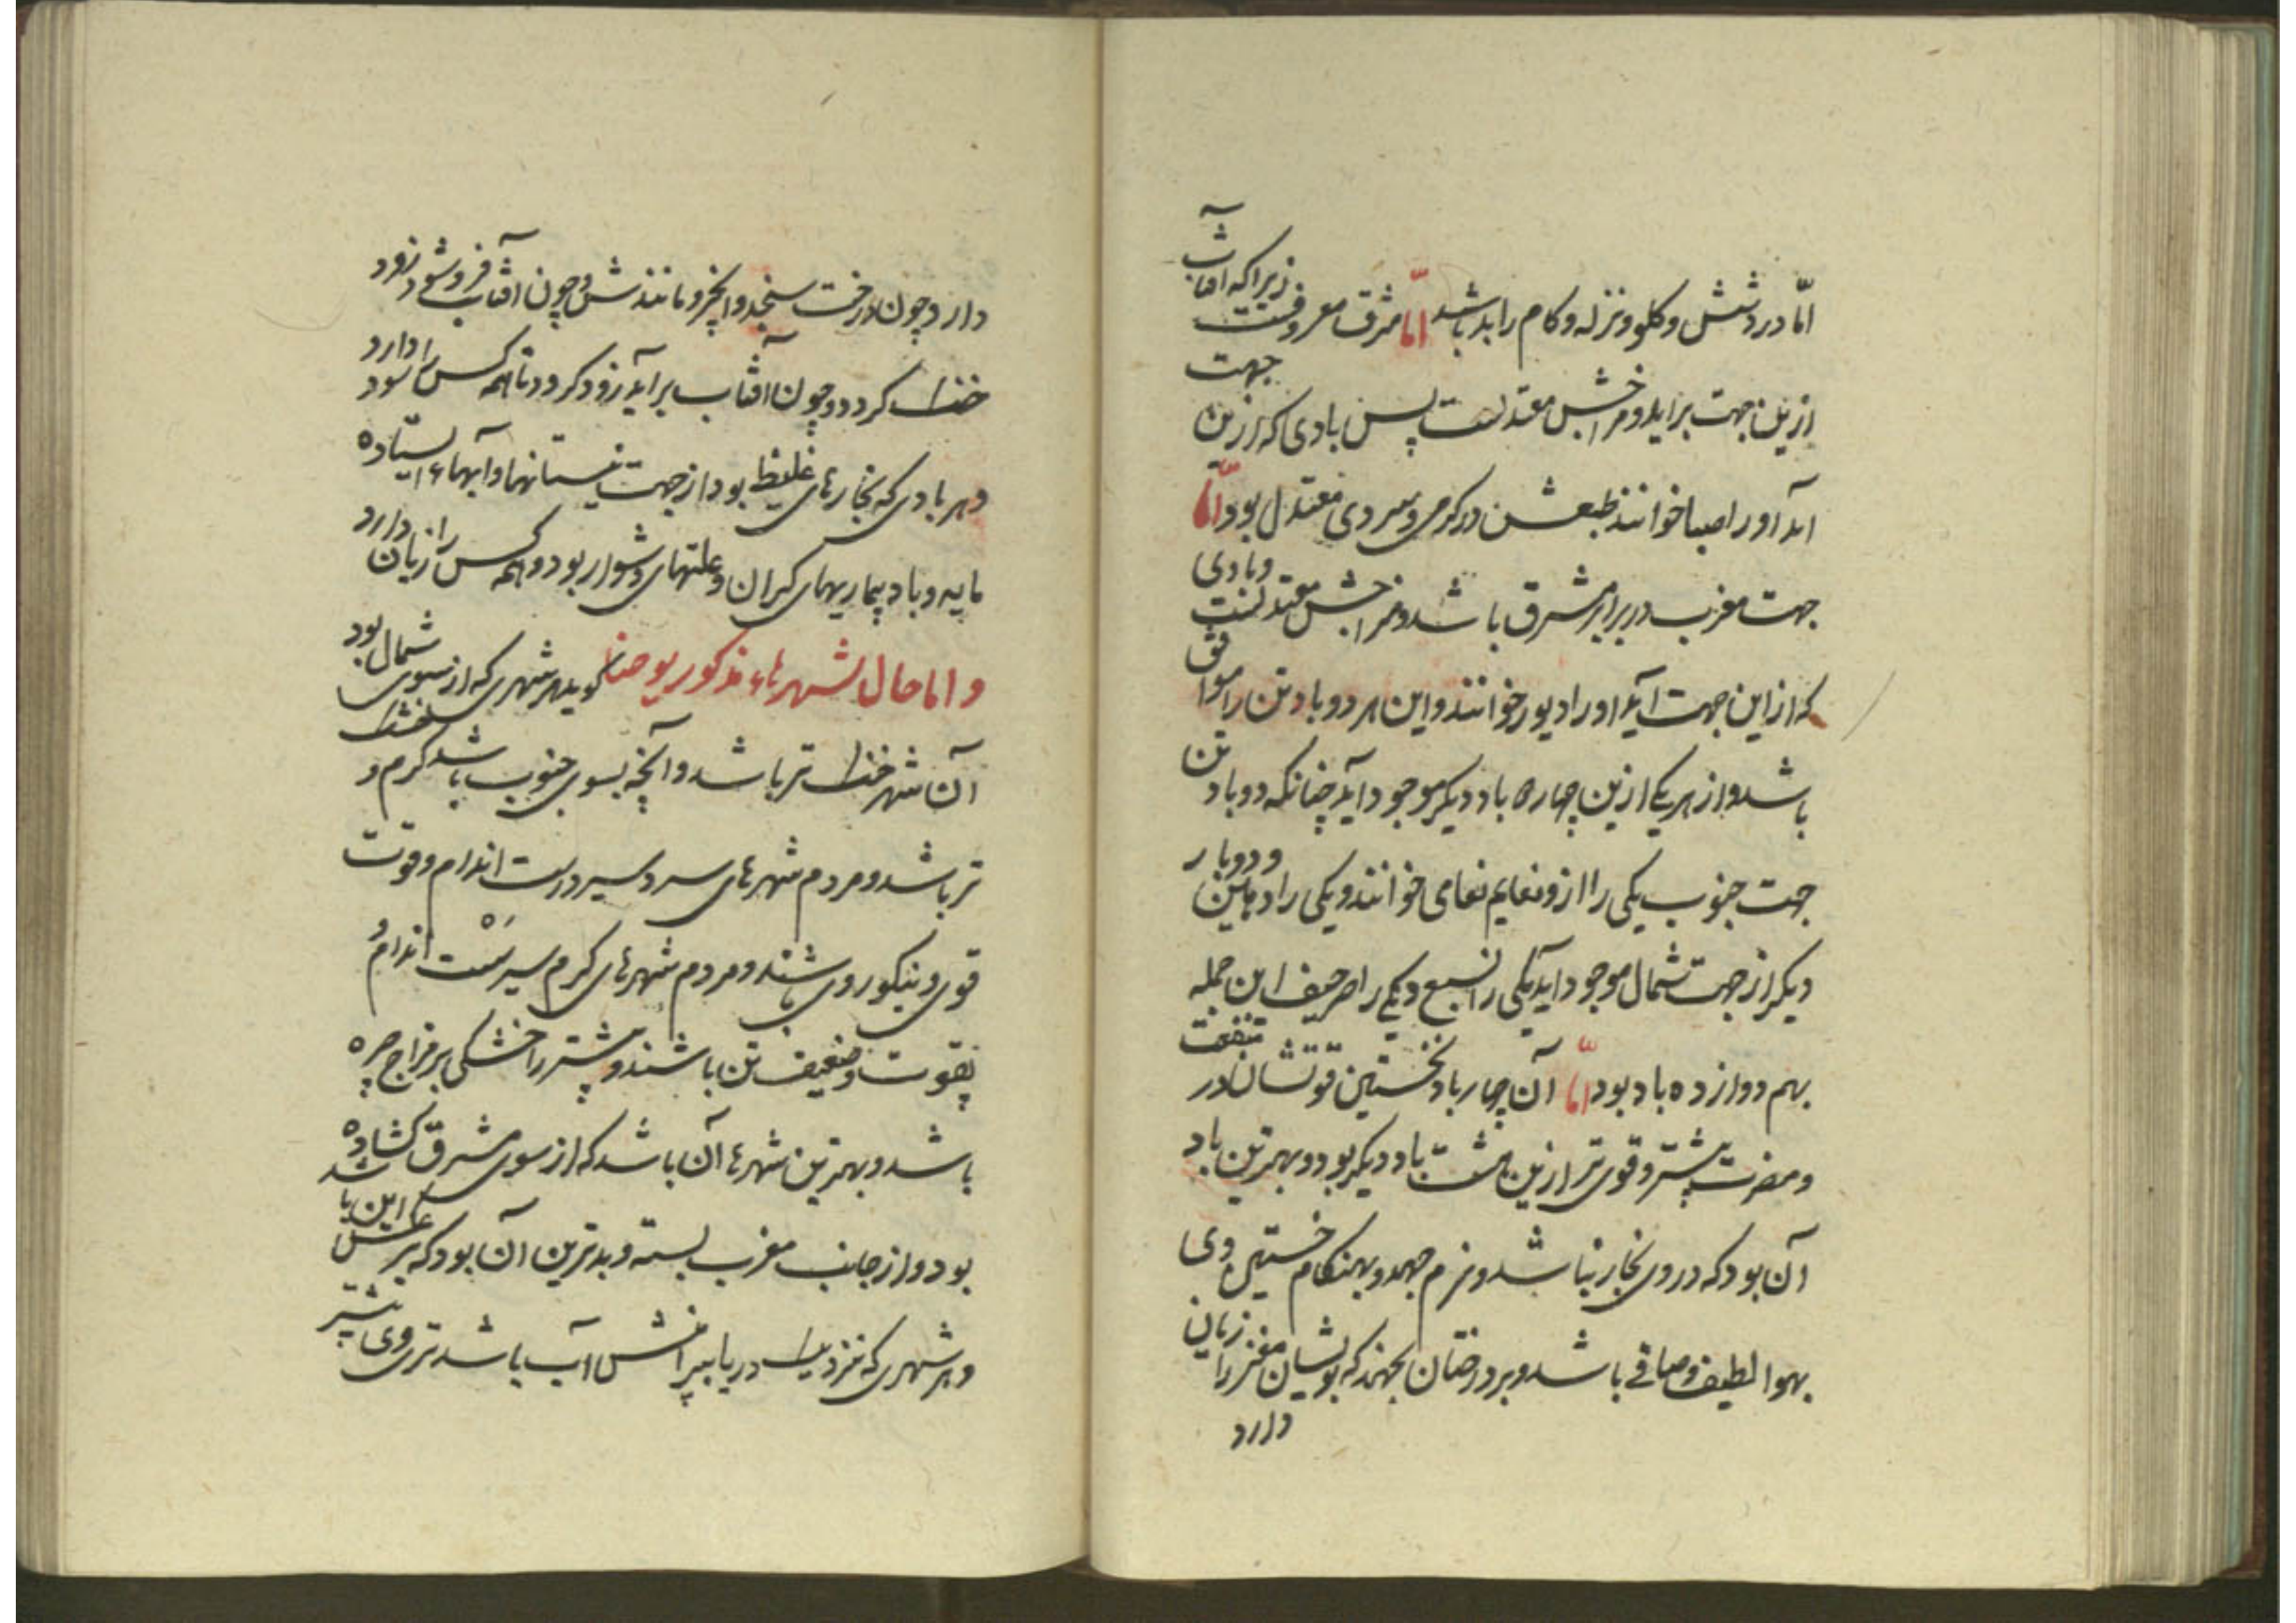 امّا در دشش و کلو و نزله و کام را بد باشد امّا مشرق معروفست زیرا که آفتاب
ازین جهت براید و مزاجش معتدلست پس بادی که ازین جهت
آید او را صبا خوانند طبعش در کرمی و سردی معتدل بود امّا
جهت مغرب در برابر مشرق باشد و مزاجش معتدلست و بادی
که از این جهت آید او را دبور خوانند و این هر دو باد تن را موافق
باشد و از هر یکی ازین چهار باد دیکر موجود آید چنانکه دو باد تن
جهت جنوب یکی را ازو نعایم نعامی خوانند و یکی را و دو باد
دیکر از جهت شمال موجود آید یکی را نسع و یکی را حرجیف این جمله
بهم دوازده باد بود امّا آن چهار باد نخستین قوتشان در منفعت
و مضرت بیشتر و قوی تر ازین هشت باد دیکر بود و بهترین باد
آن بود که در وی بخار نباشد و نرم جهد و بهنکام جستن وی
هوا لطیف و صافی باشد و بر درختان نجهند که بویشان مغز را زیان
دارد
دارد چون درخت سنجد و انجیر و مانندش و چون آفتاب فرو شود زود
خنک کردد و چون آفتاب برآید زود کرم کردد تا همه کس را سود دارد
و هر بادی که بخارهای غلیظ بود از جهت نیستانها و آبهاء ایستاده
مایه وبا و بیماریهای کران و علتهای دشوار بود و همه کس را زیان دارد
و اما حال شهرهاء مذکور یوحنا کوید هر شهری که از سوی شمال بود
آن شهر خنک تر باشد و آنچه بسوی جنوب باشد کرم و
تر باشد و مردم شهرهای سردسیر درست اندام و قوت
قوی و نیکو روی باشند و مردم شهرهای کرم سیر سست اندام و
بقوت و ضعیف تن باشند و بیشتر را خشکی بر مزاج چیره
باشد و بهترین شهرها آن باشد که از سوی مشرق کشاده
بود و از جانب مغرب بسته و بدترین آن بود که بر عکس این باشد
و هر شهری که نزدیک دریا بیرامنش آب باشد تری وی بیشتر